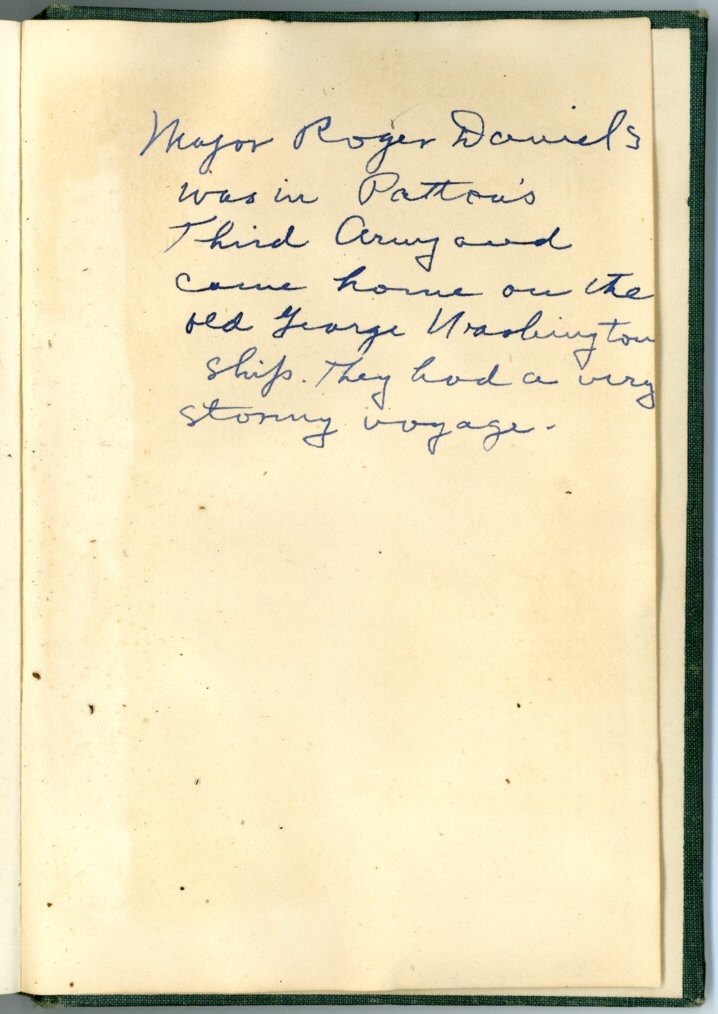 Major Roger Daniels
was in Patton's
Third Army and
came home on the
old George Washington
ship. They had a very
stormy voyage.